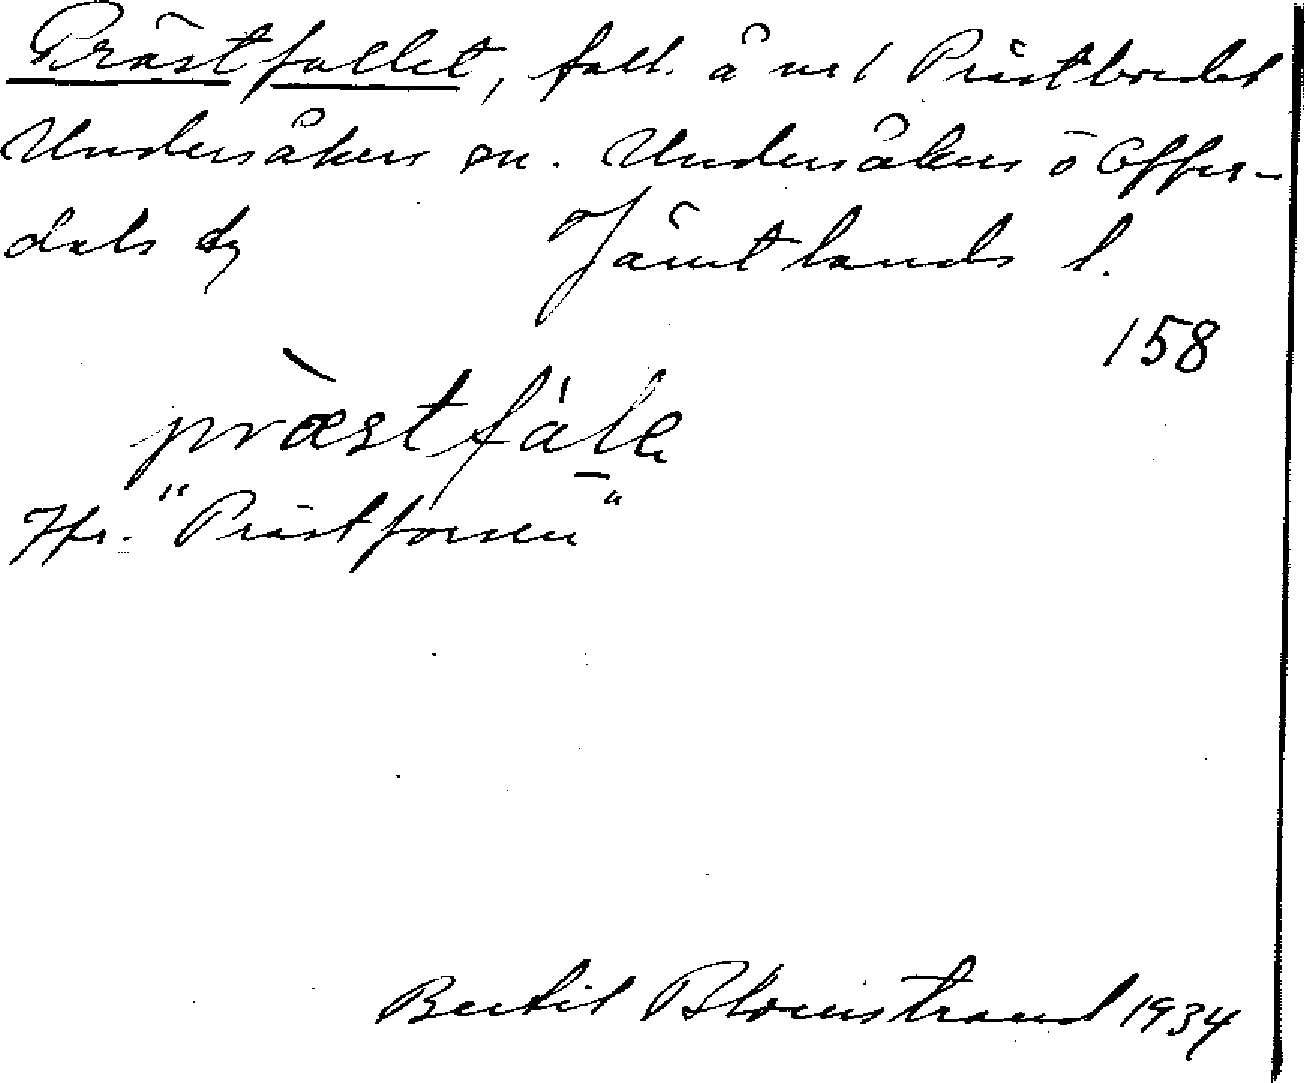 Prästfallet, fall. å nr 1 Prästbordet
Undersåkers sn. Undersåkers o Offer-
dals tg Jämtlands l.
158
præstfàlɛ
Jfr. "Prästforsen"
Bertil Blomstrand 1934